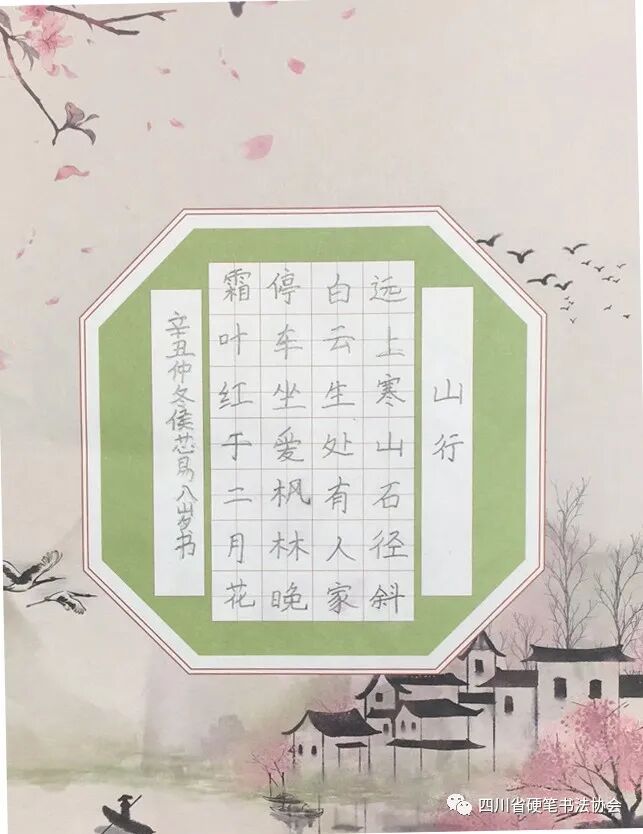 山行
远上寒山石径斜
白云生处有人家
停车坐爱枫林晚
霜叶红于二月花
辛丑仲冬侯芯易八岁书
四川省硬笔书法协会